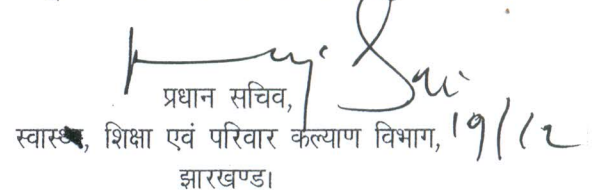 प्रधान सचिव,
स्वास्थ्य, शिक्षा एवं परिवार कल्याण विभाग, 19/12
झारखण्ड।